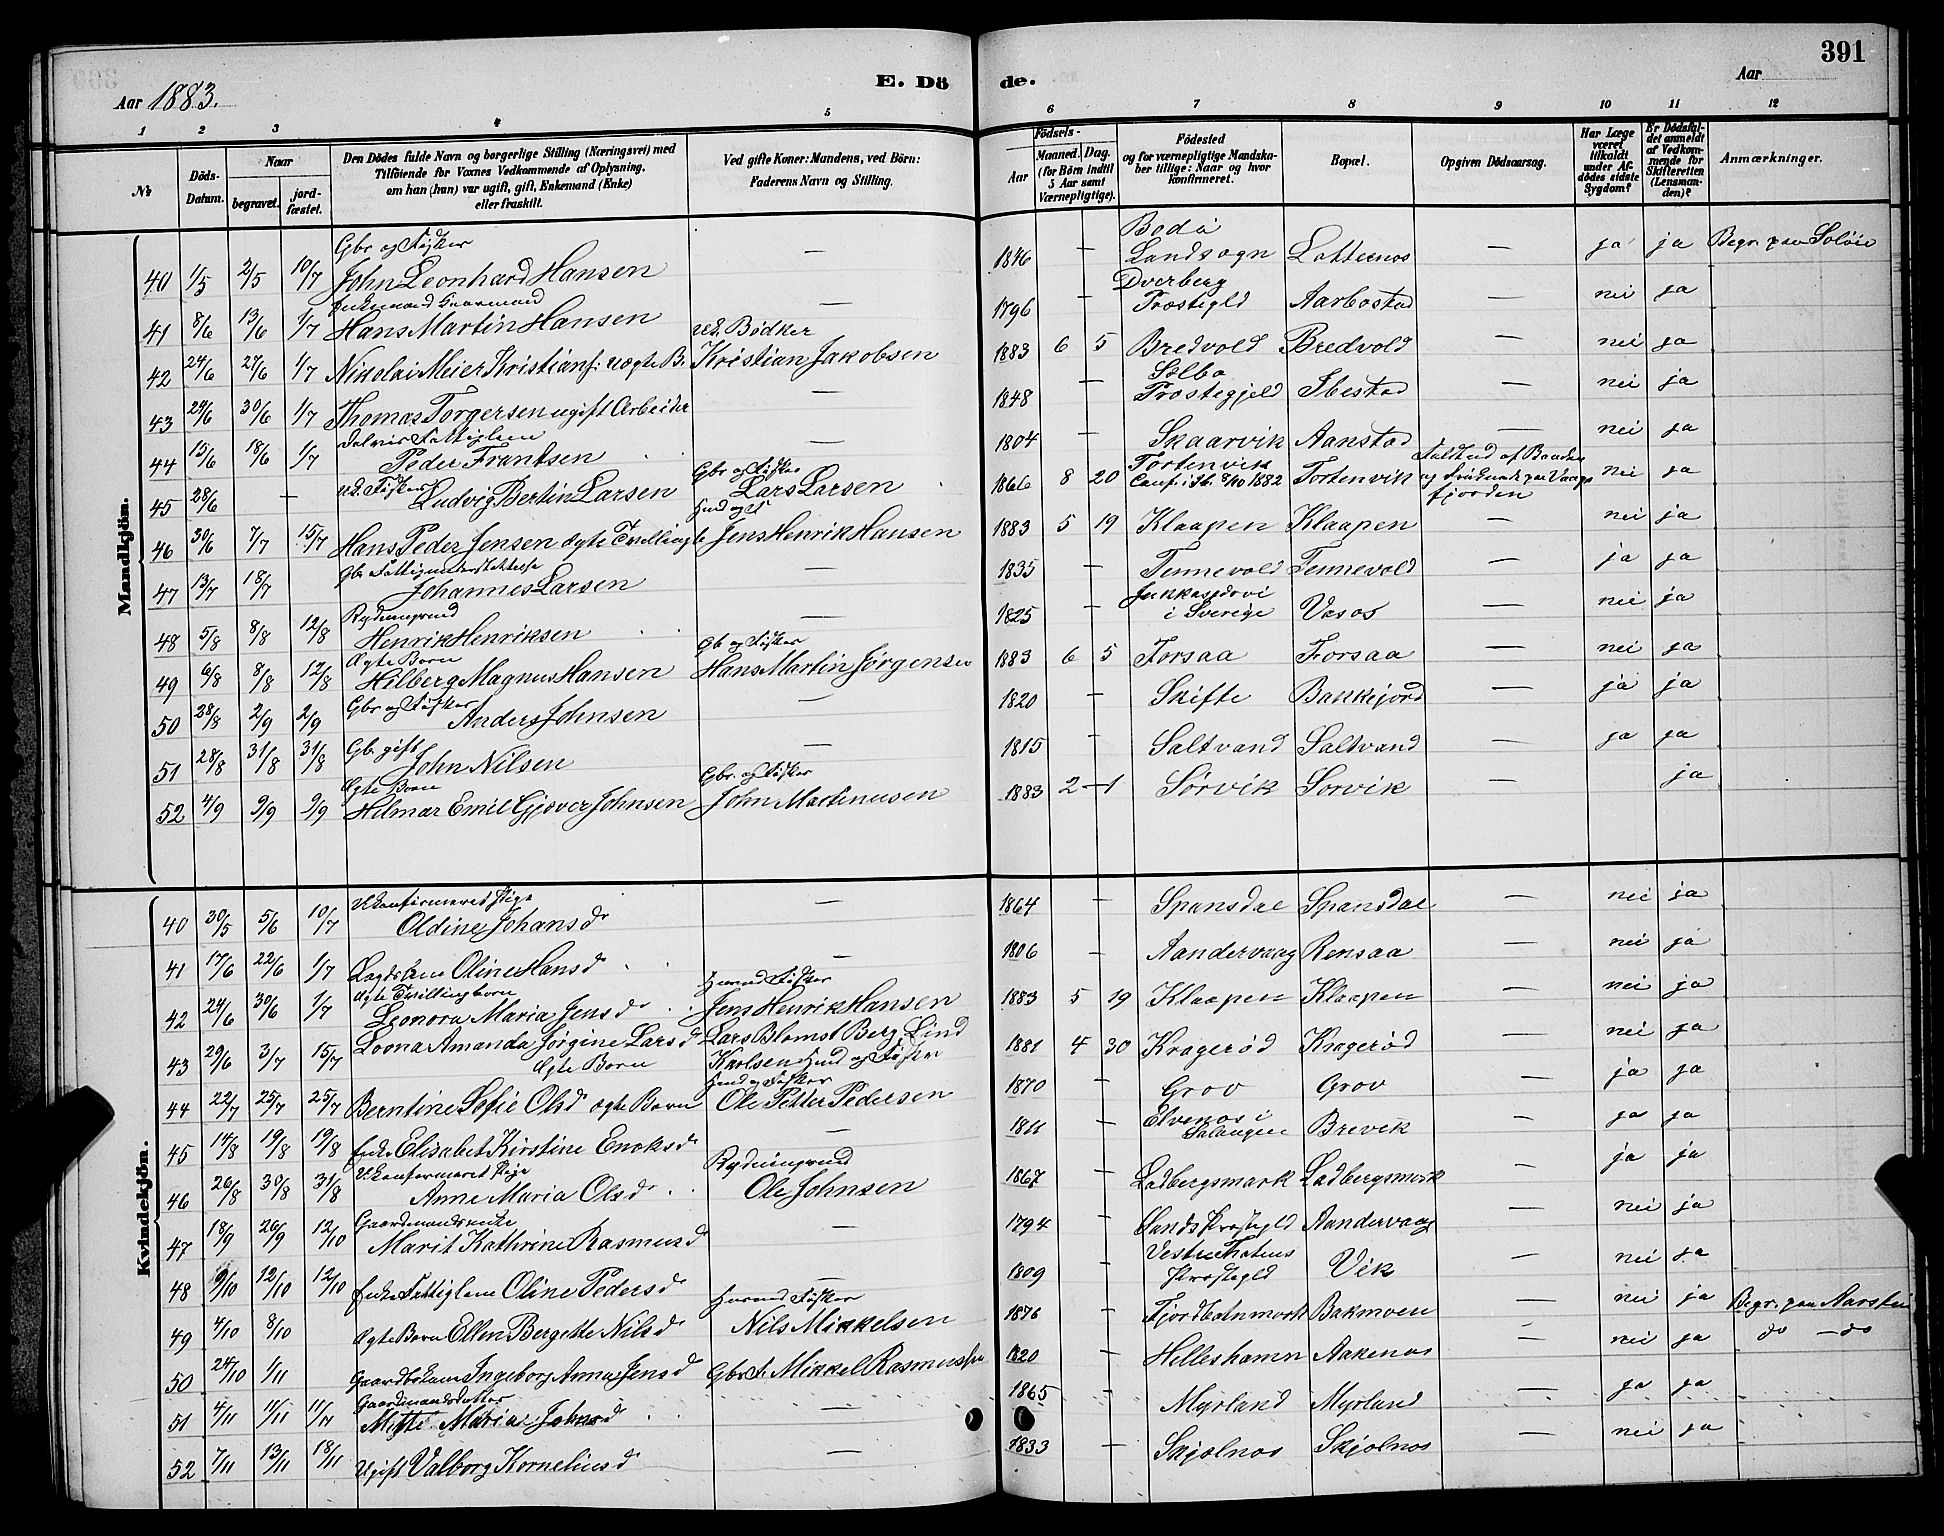 391
Aar 1883. E. Dö de. Aar
1 2 3 4 5 6 7 8 9 10 11 12
№ Döds-Datum. Naar begravet. jordfæstet. Den Dödes fulde Navn og borgerlige Stilling (Næringsvei) med Tilföiende for Voxnes Vedkommende af Oplysning, om han (hun) var ugift, gift, Enkemand (Enke) eller fraskilt. Ved gifte Koner: Mandens, ved Börn: Faderens Navn og Stilling. Födsels- Aar Maaned. Dag. (for Börn indtil 5 Aar samt Værnepligtige). Födested og for værnepligtige Mandskaber tillige: Naar og hvor konfirmeret. Bopæl. Opgiven Dödsaarsag. Har Læge været tilkaldt under Afdödes sidste Sygdom? Er Dödsfaldet anmeldt af Vedkommende for Skifteretten (Lensmanden)? Anmærkninger.
Mandkjön.
40 1/5 2/5 10/7 Gbr og Fisker John Leonhard Hansen — 1846 — Bodö Landsogn — ja ja Begr. paa
41 8/6 13/6 1/7 Enkemand Gaarmand Hans Martin Hansen — 1796 — Dverberg Præstigld Aarbostad — nei ja
42 24/6 27/6 1/7 Nikolai Meier Kristians: uægte B. uk. Bødker Kristian Jakobsen 1883 6 5 Bredvold Bredvold — nei ja
43 24/6 30/6 1/7 Thomas Torgersen ugift Arbeider — 1848 — Selbo Prostegjeld Ibestad — nei ja
44 15/6 18/6 1/7 Peder Frantsen — 1804 — Skaarvik Aanstad nei ja
45 28/6 — uk. Fisker Ludvig Bertin Larsen Gbr og Fisker Lars Larsen 1866 8 20 Tortenvik Conf. i Ib. 8/10 1882 Tortenvik Faldt ud af Baaden og fjorden nei ja
46 30/6 7/7 15/7 Hans Peder Jensen ægte Tvilling Jens Henrik Hansen 1883 5 19 Klaapen Klaapen — nei ja
47 13/7 18/7 Gbr Fattigunderstøttelse Johannes Larsen — 1835 — Tennevold Tennevold — ja ja
48 5/8 8/8 12/8 Rydningsmd Henrik Henriksen — 1825 — Jukkasjervi i Sverige Vasos — nei ja
49 6/8 8/8 12/8 Ægte Barn Hilberg Magnus Hansen Gb og Fisker Hans Martin Jørgensen 1883 6 5 Forsaa Forsaa — nei ja
50 28/8 2/9 2/9 Gbr og Fisker Anders Johnsen — 1820 — Skifte Bakkejord — ja ja
51 28/8 31/8 31/8 Gb. gift John Nilsen — 1815 — Saltvand Saltvand — ja ja
52 4/9 9/9 9/9 Ægte Barn Hilmar Emil Gjæver Johnsen Gbr. og Fisker John Martinusen 1883 2 1 Sørvik Sorvik — ja
Kvindekjön.
40 30/5 5/6 10/7 Ukonfirmeret Pige Oldine Johansd — 1864 — Spansdal Spansdal — nei ja
41 17/6 22/6 1/7 Lægdslem Oline Hansd — 1806 — Aandervaag Rensaa — nei ja
42 24/6 30/6 1/7 Ægte Tvillingbarn Leonora Maria Jensd Husmd Fisker Jens Henrik Hansen 1883 5 19 Klaapen Klaapen — nei ja
43 29/6 3/7 15/7 Lovna Amanda Jørgine Larsd Ægte Barn Lars Blomst Berg Lind Karlsen Husmd og Fisker 1881 4 30 Kragerød Kragerød — nei ja
44 22/7 25/7 25/7 Berntine Sofie Olsd ægte Barn Husmd og Fisker Ole Petter Pedersen 1870 — Grov Grov — ja ja
45 14/8 19/8 19/8 Enke Elisabet Kirstine Enoksd — 1811 — Elvenes i Salangen Brevik — ja ja
46 26/8 30/8 31/8 Ukonfirmeret Pige Anne Maria Olsd Rydningsmd Ole Johnsen 1867 — Ladbergsmark Ladbergsmark — ja ja
47 18/9 26/9 12/10 Gaardmandsenke Marit Kathrine Rasmusd — 1794 — Sands Præstegld Aandervaag — nei ja
48 9/10 12/10 12/10 Enke Fattiglem Oline Pedersd — 1809 — Præstegld Vik — nei ja
49 4/10 8/10 Ægte Barn Ellen Bergette Nilsd Husmd Fisker Nils Mikkelsen 1876 — Fjordbotnmark Bakmoen — nei ja Begr. paa Aarsten
50 24/10 1/11 Ingeborg Anna Jensd Gbr. F. Mikkel Rasmussen 1820 — Helleshamn Aakenes — nei ja do — do
51 4/11 11/11 11/11 Gaardmandsdatter Mette Maria Johnsd — 1865 — Myrland Myrland — ja ja
52 7/11 13/11 18/11 Ugift Valborg Korneliusd — 1833 — Skjolnes Skjolnes — nei ja